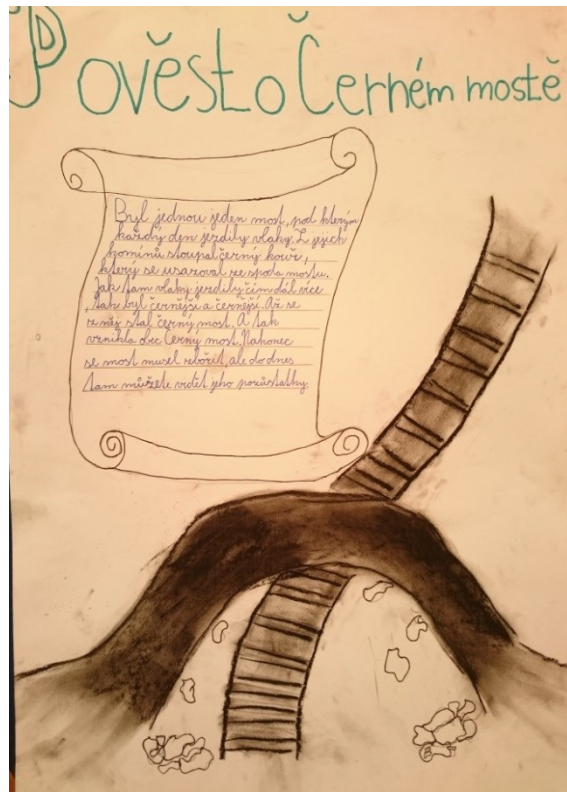 Pověst o Černém mostě
Byl jednou jeden most, pod kterým
každý den jezdily vlaky. Z jejich
komínů stoupal černý kouř,
který se usazoval ze spoda mostu.
Jak tam vlaky jezdily čím dál více
, tak byl černější a černější. Až se
z něj stal černý most. A tak
vznikla obec Černý most. Nakonec
se most musel zbořit, ale do dnes
tam můžete vidět jeho pozůstatky.